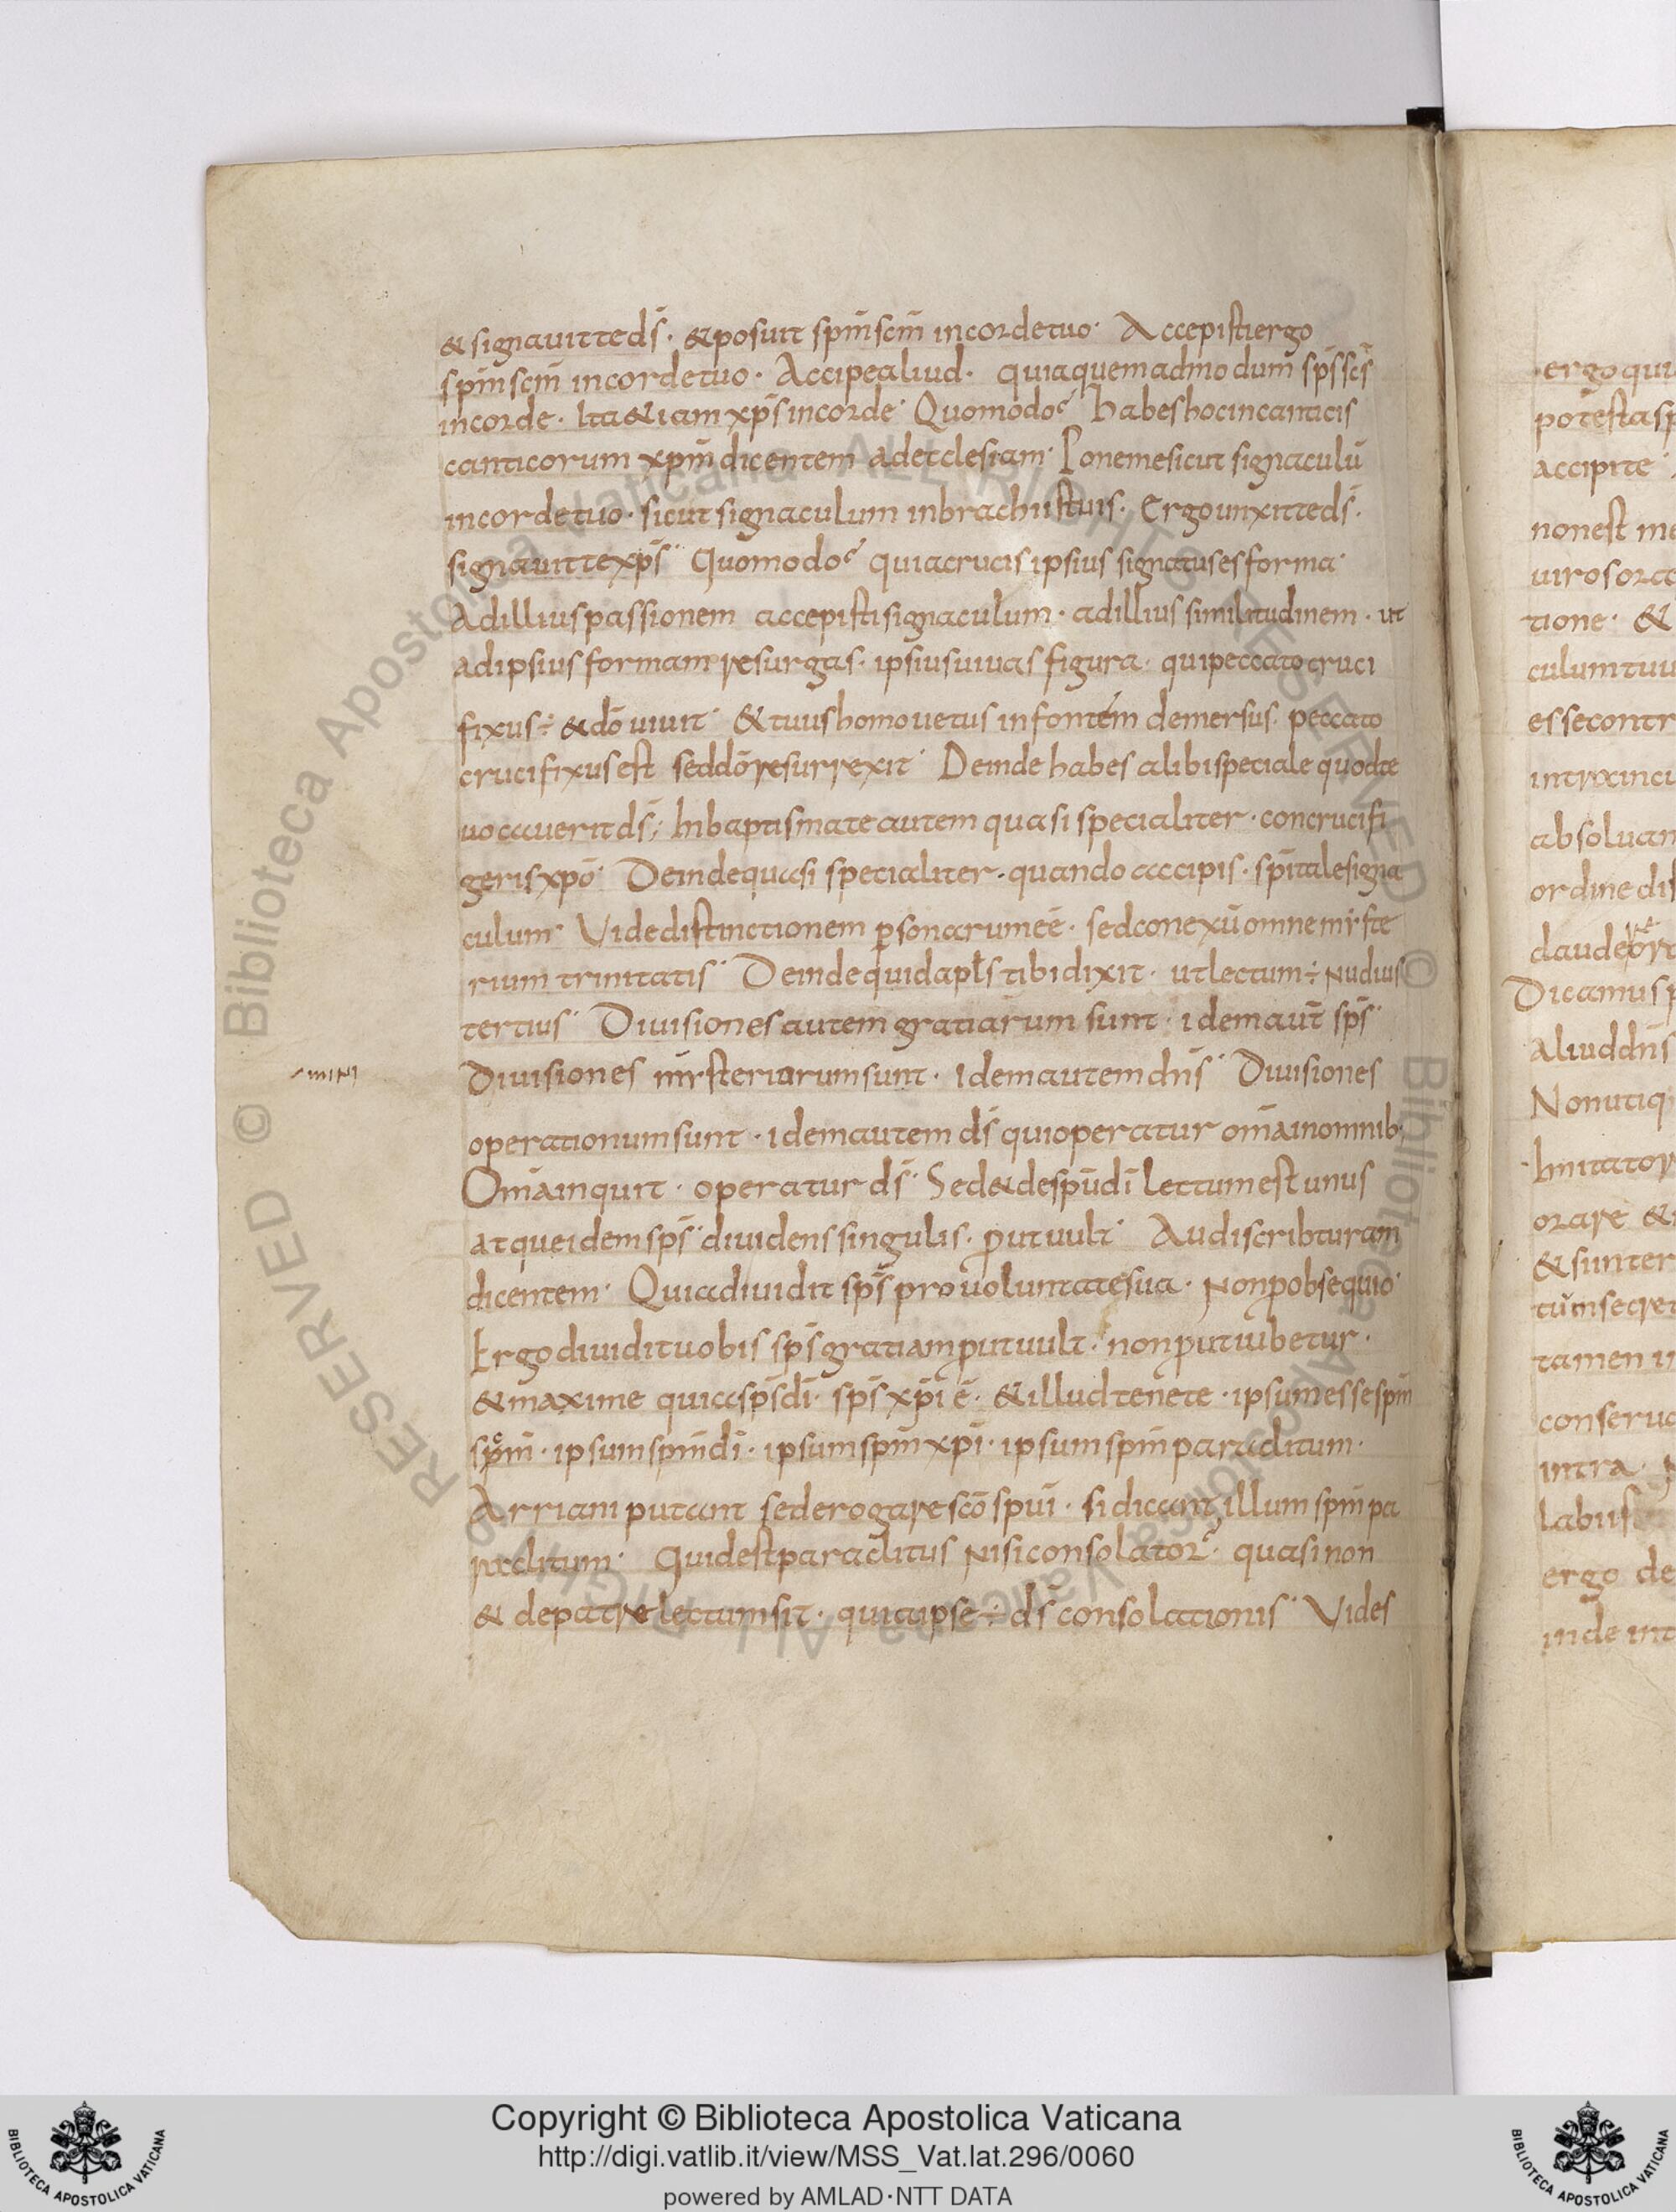 & signauit te dſ̄. & posuit spm̄ scm̄ in corde tuo. Accepisti ergo
spm̄ scm̄ in corde tuo. Accipe aliud. quia quemadmodum sps̄ scs̄
in corde. Ita &iam xps̄ in corde. Quomodo? habes hoc in canticis
canticorum xpm̄ dicentem ad ecclesiam. Pone me sicut signaculū
in corde tuo. sicut signaculum in brachiis tuis. Ergo unxit te ds̄.
signauit te xps̄. Quomodo? quia crucis ipsius signatus es forma.
Ad illius passionem accepisti signaculum. ad illius similitudinem. ut
ad ipsius formam resurgas. ipsius uiuas figura. qui peccato cruci
fixus ÷ & dō uiuit. & tuus homo uetus in fontem demersus. peccato
crucifixus est sed dō resurrexit. Deinde habes alibi speciale quod te
uocauerit ds̄; In baptismate autem quasi specialiter. concrucifi
geris xpō. Deinde quasi specialiter. quando accipis. spītale signa
culum. Vide distinctionem ꝑsonarum eē. sed conexū omne myste
rium trinitatis. Deinde quid apls̄ tibi dixit. ut lectum ÷ nudius
tertius. Diuisiones autem gratiarum sunt. idem aut̄ sps̄.
Diuisiones mysteriorum sunt. Idem autem dns̄. Diuisiones
operationum sunt. idem autem ds̄ qui operatur om̄a in omnib;
Om̄a inquit. operatur ds̄. Sed & de spū dī lectum est unus
atque idem sps̄ diuidens singulis. ꝓut uult. Audi scribturam
dicentem. Quia diuidit sps̄ pro uoluntate sua. Non ꝓ obsequio.
Ergo diuidit uobis sps̄ gratiam ꝓut uult. non ꝓut iubetur.
& maxime quia sps̄ dī. sps̄ xpī ē. & illud tenete. ipsum esse spm̄
spm̄. ipsum spm̄ dī. ipsum spm̄ xpī. ipsum spm̄ paraclitum.
Arriani putant se derogare scō spuī. si dicant illum spm̄ pa
raclitum. Quid est paraclitus nisi consolator? quasi non
& de patre lectum sit. quia ipse ÷ ds̄ consolationis. Vides
ergo qui
potestas
accipite
non est
uiros
tione. &
culum tuu
esse contr
absoluan
ordine dis
Dicamus
Aliud dns̄
Non utiq;
Imitator
orare &
& sunt
tamen
conseru
intra.
labiis
ergo de
inde int
© Biblioteca Apostolica Vaticana ALL RIGHTS RESERVED
Copyright © Biblioteca Apostolica Vaticana
http://digi.vatlib.it/view/MSS_Vat.lat.296/0060
powered by AMLAD·NTT DATA
BIBLIOTECA APOSTOLICA VATICANA
BIBLIOTECA APOSTOLICA VATICANA